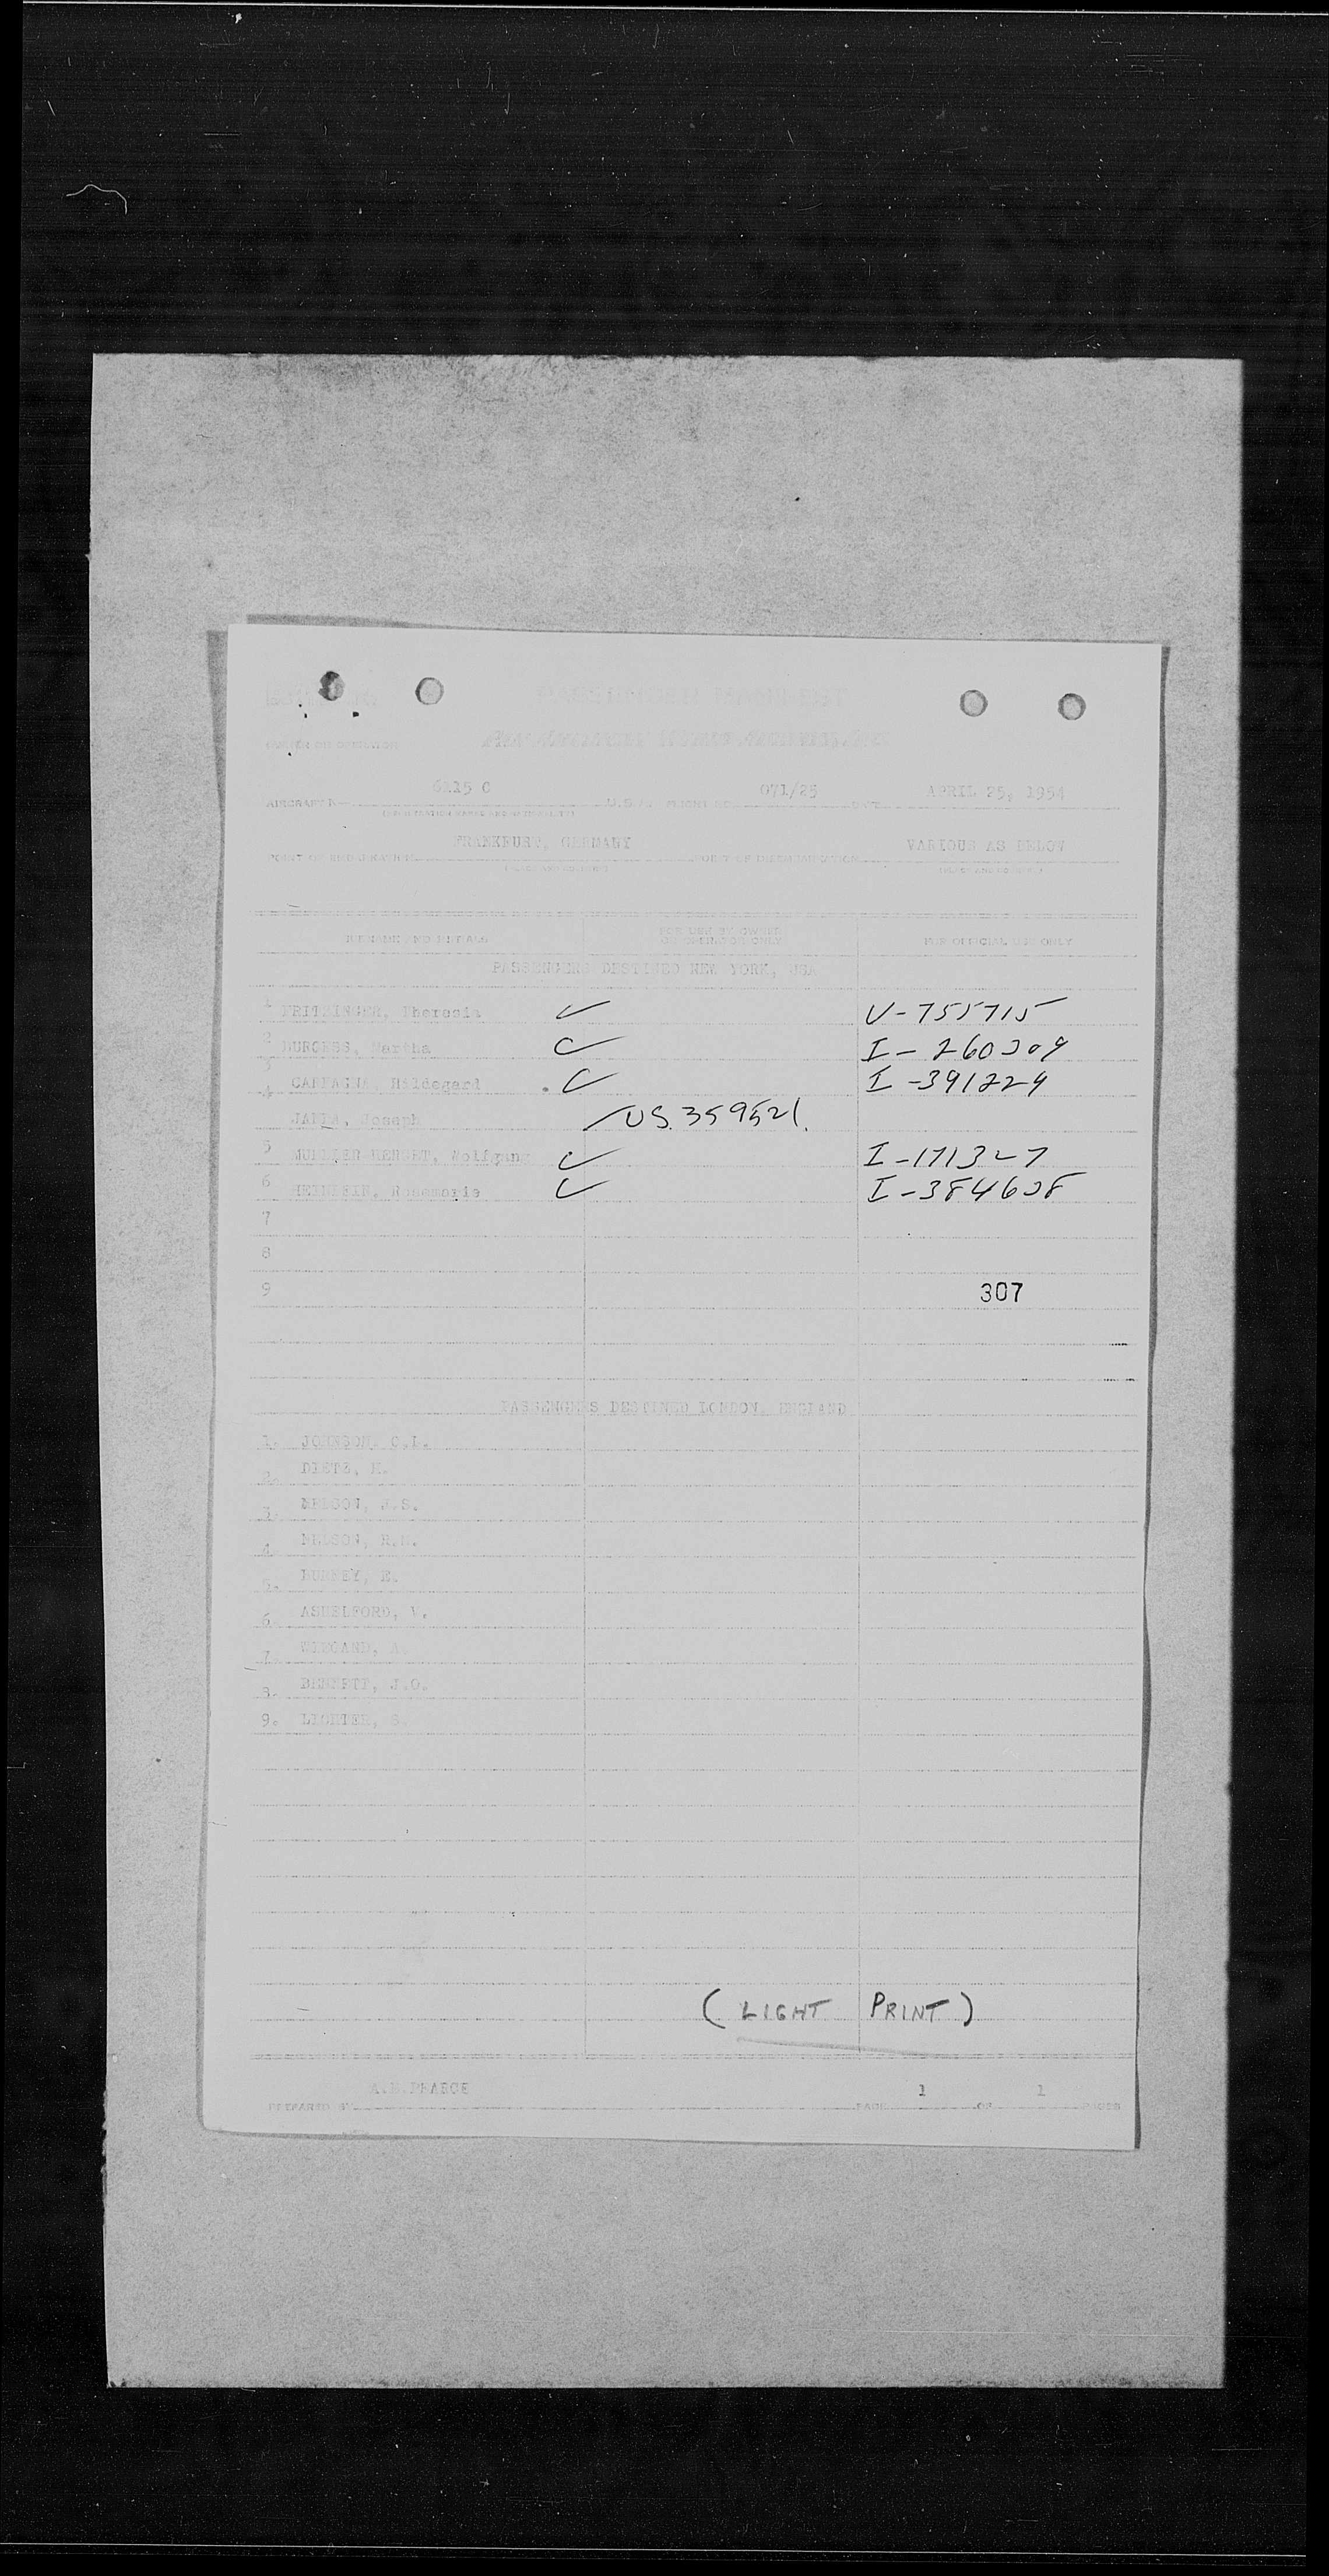 PASSENGER MANIFEST
OWNER OR OPERATOR
AIRCRAFT 6115 C U.S.A. FLIGHT NO. 071/25 DATE APRIL 25, 1954
POINT OF EMBARKATION FRANKFURT, GERMANY POINT OF DISEMBARKATION VARIOUS AS BELOW
(PLACE AND COUNTRY) (PLACE AND COUNTRY)
SURNAME AND INITIALS FOR USE BY OWNER OR OPERATOR ONLY FOR OFFICIAL USE ONLY
PASSENGERS DESTINED NEW YORK, USA
1 FRITZINGER, Theresia ✓ V-755715
2 BURGESS, Martha ✓ I-260309
Hildegard ✓ I-391224
4 Joseph US. 359521.
5 Wolfgang ✓ I-171327
6 Rosemarie ✓ I-384608
7
8
9 307
PASSENGERS DESTINED LONDON, ENGLAND
1. JOHNSON, C.I.
2. DIETZ, H.
3. NELSON, J.S.
4. NELSON, R.
5. E.
6. ASHELFORD, V.
7. WIEGAND, A.
8. BENNETT, J.O.
9. LICHTER, S.
(LIGHT PRINT)
PREPARED BY PEARCE PAGE 1 OF 1 PAGES